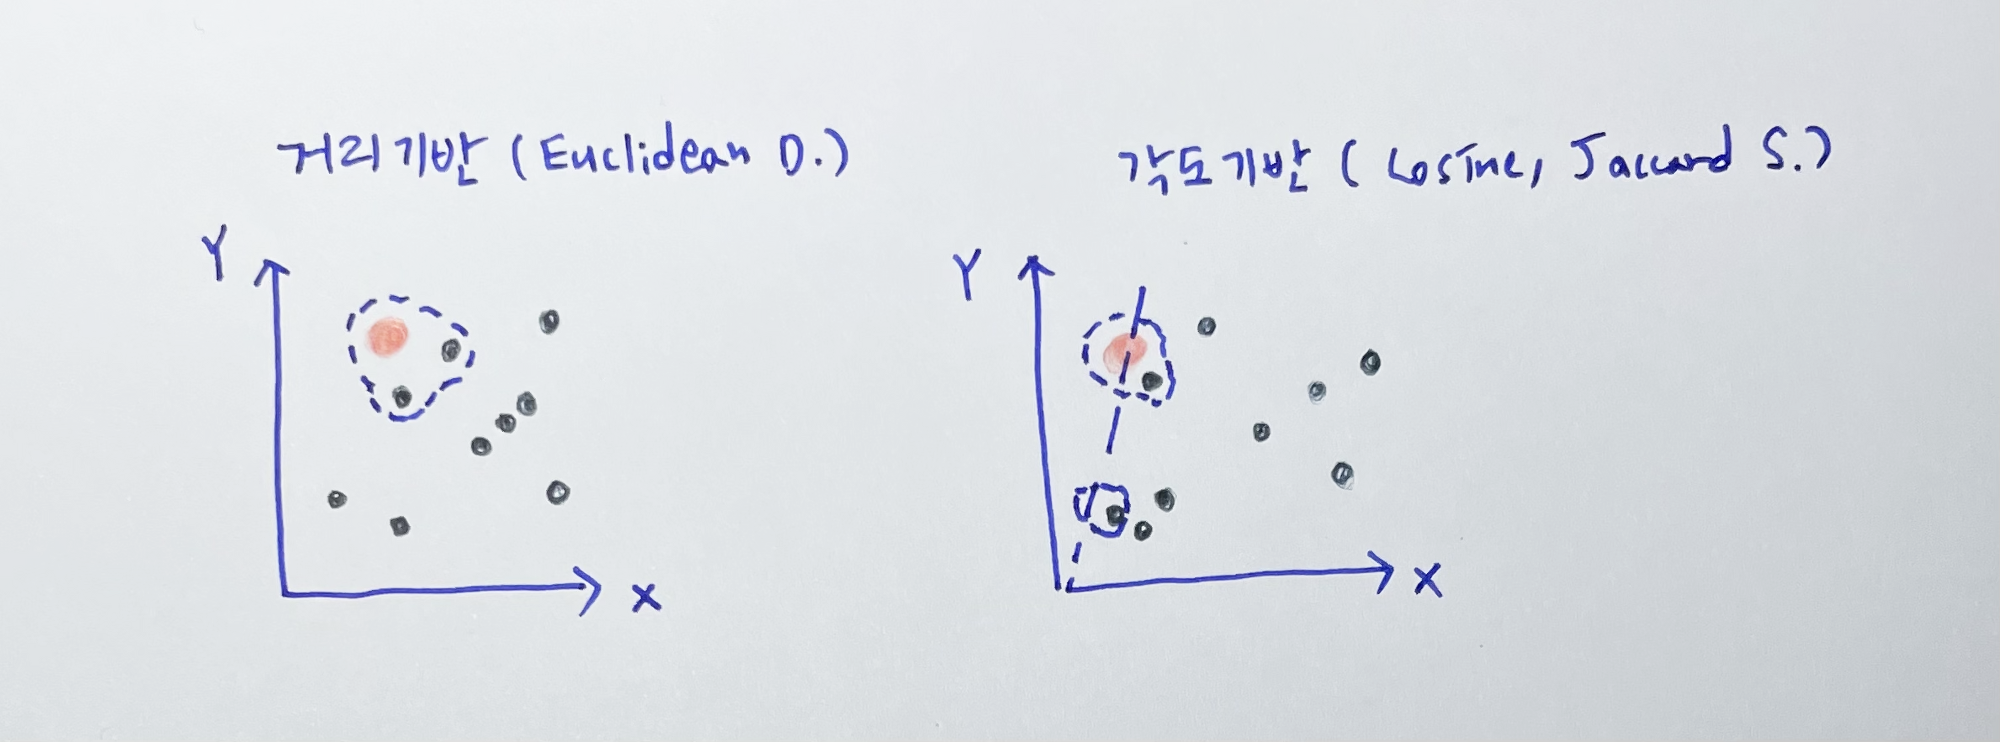 거리기반 (Euclidean D.)
각도기반 (Cosine, Jaccard S.)
Y
X
Y
X